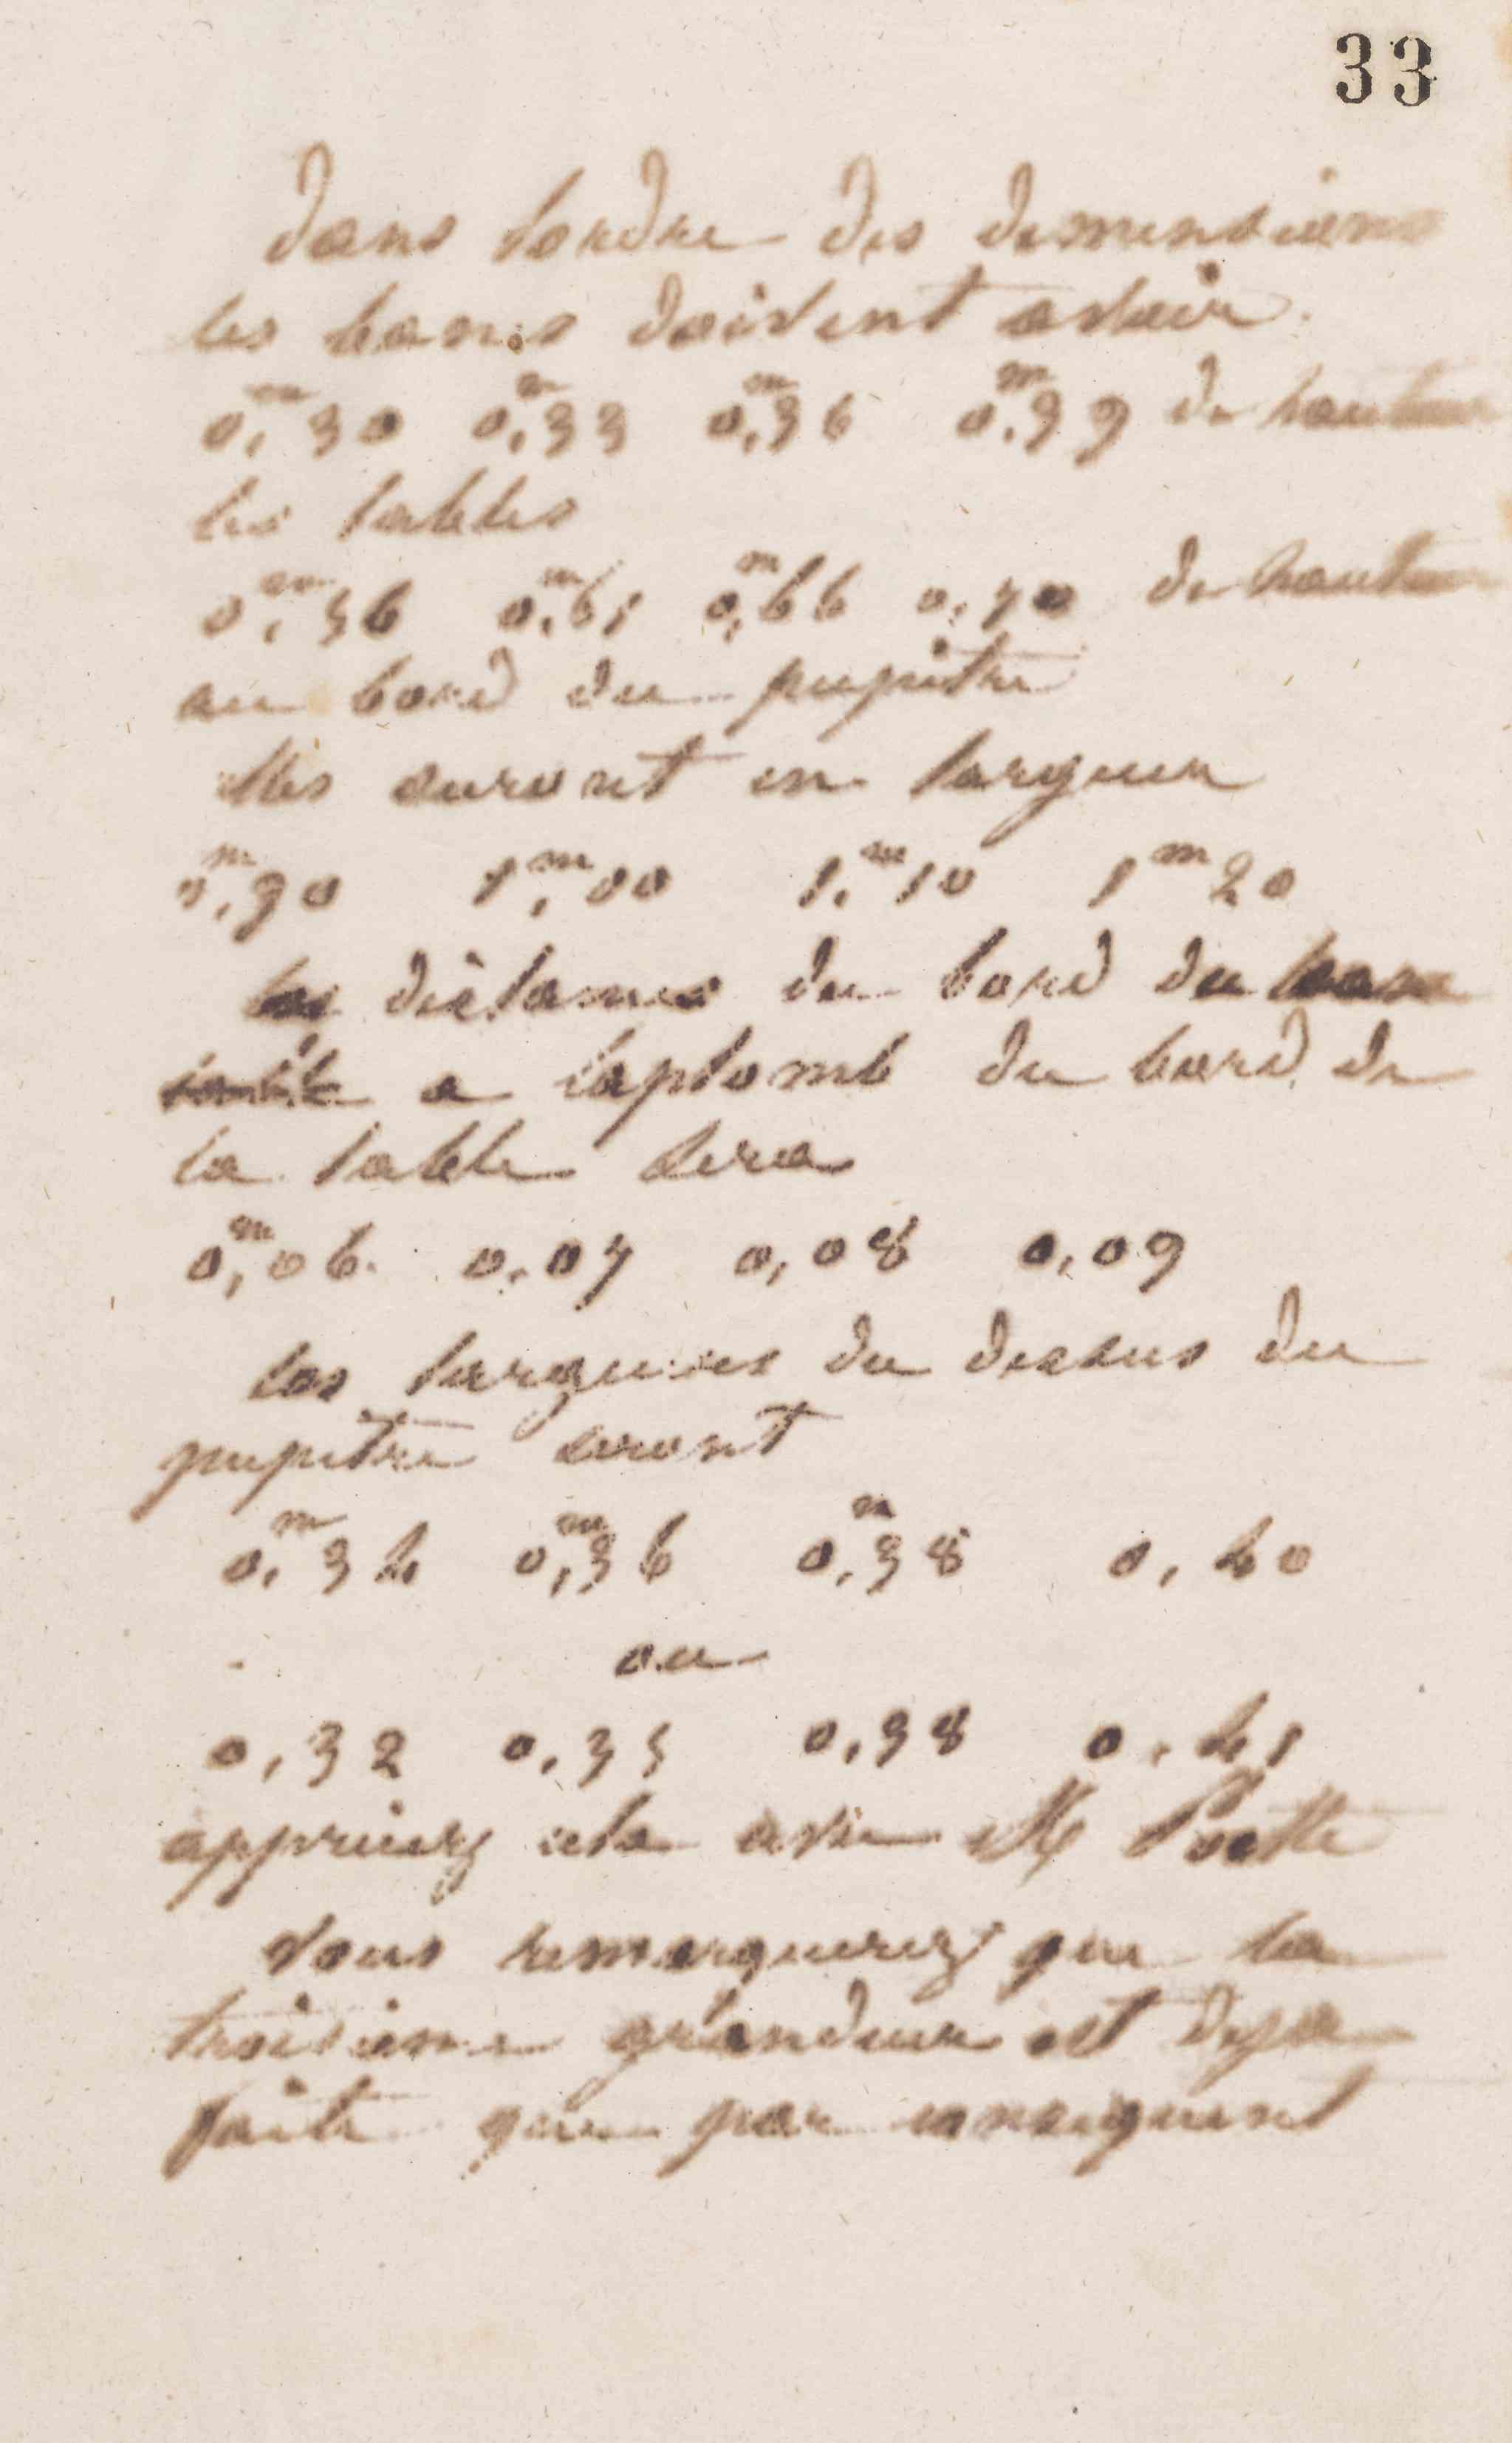 33
dans lordre des dimensions
les bancs doivent avoir
0,m30 0,m33 0,m36 0,m39 de hauteur
les tables
0,m56 0,m61 0,m66 0,70 de hauteur
au bord du pupitre
elles auront en largeur
0,m90 1,m00 1,m10 1m20
les distances du bord du banc
a laplomb du bord de
la table sera
0,m06 0,07 0,08 0,09
les largeurs du dessus du
pupitre seront
0,m34 0,m36 0,m38 0,40
ou
0,32 0,35 0,38 0,41
appréciez cela avec Mr
vous remarquerez que la
troisième grandeur est deja
faite que par consequent